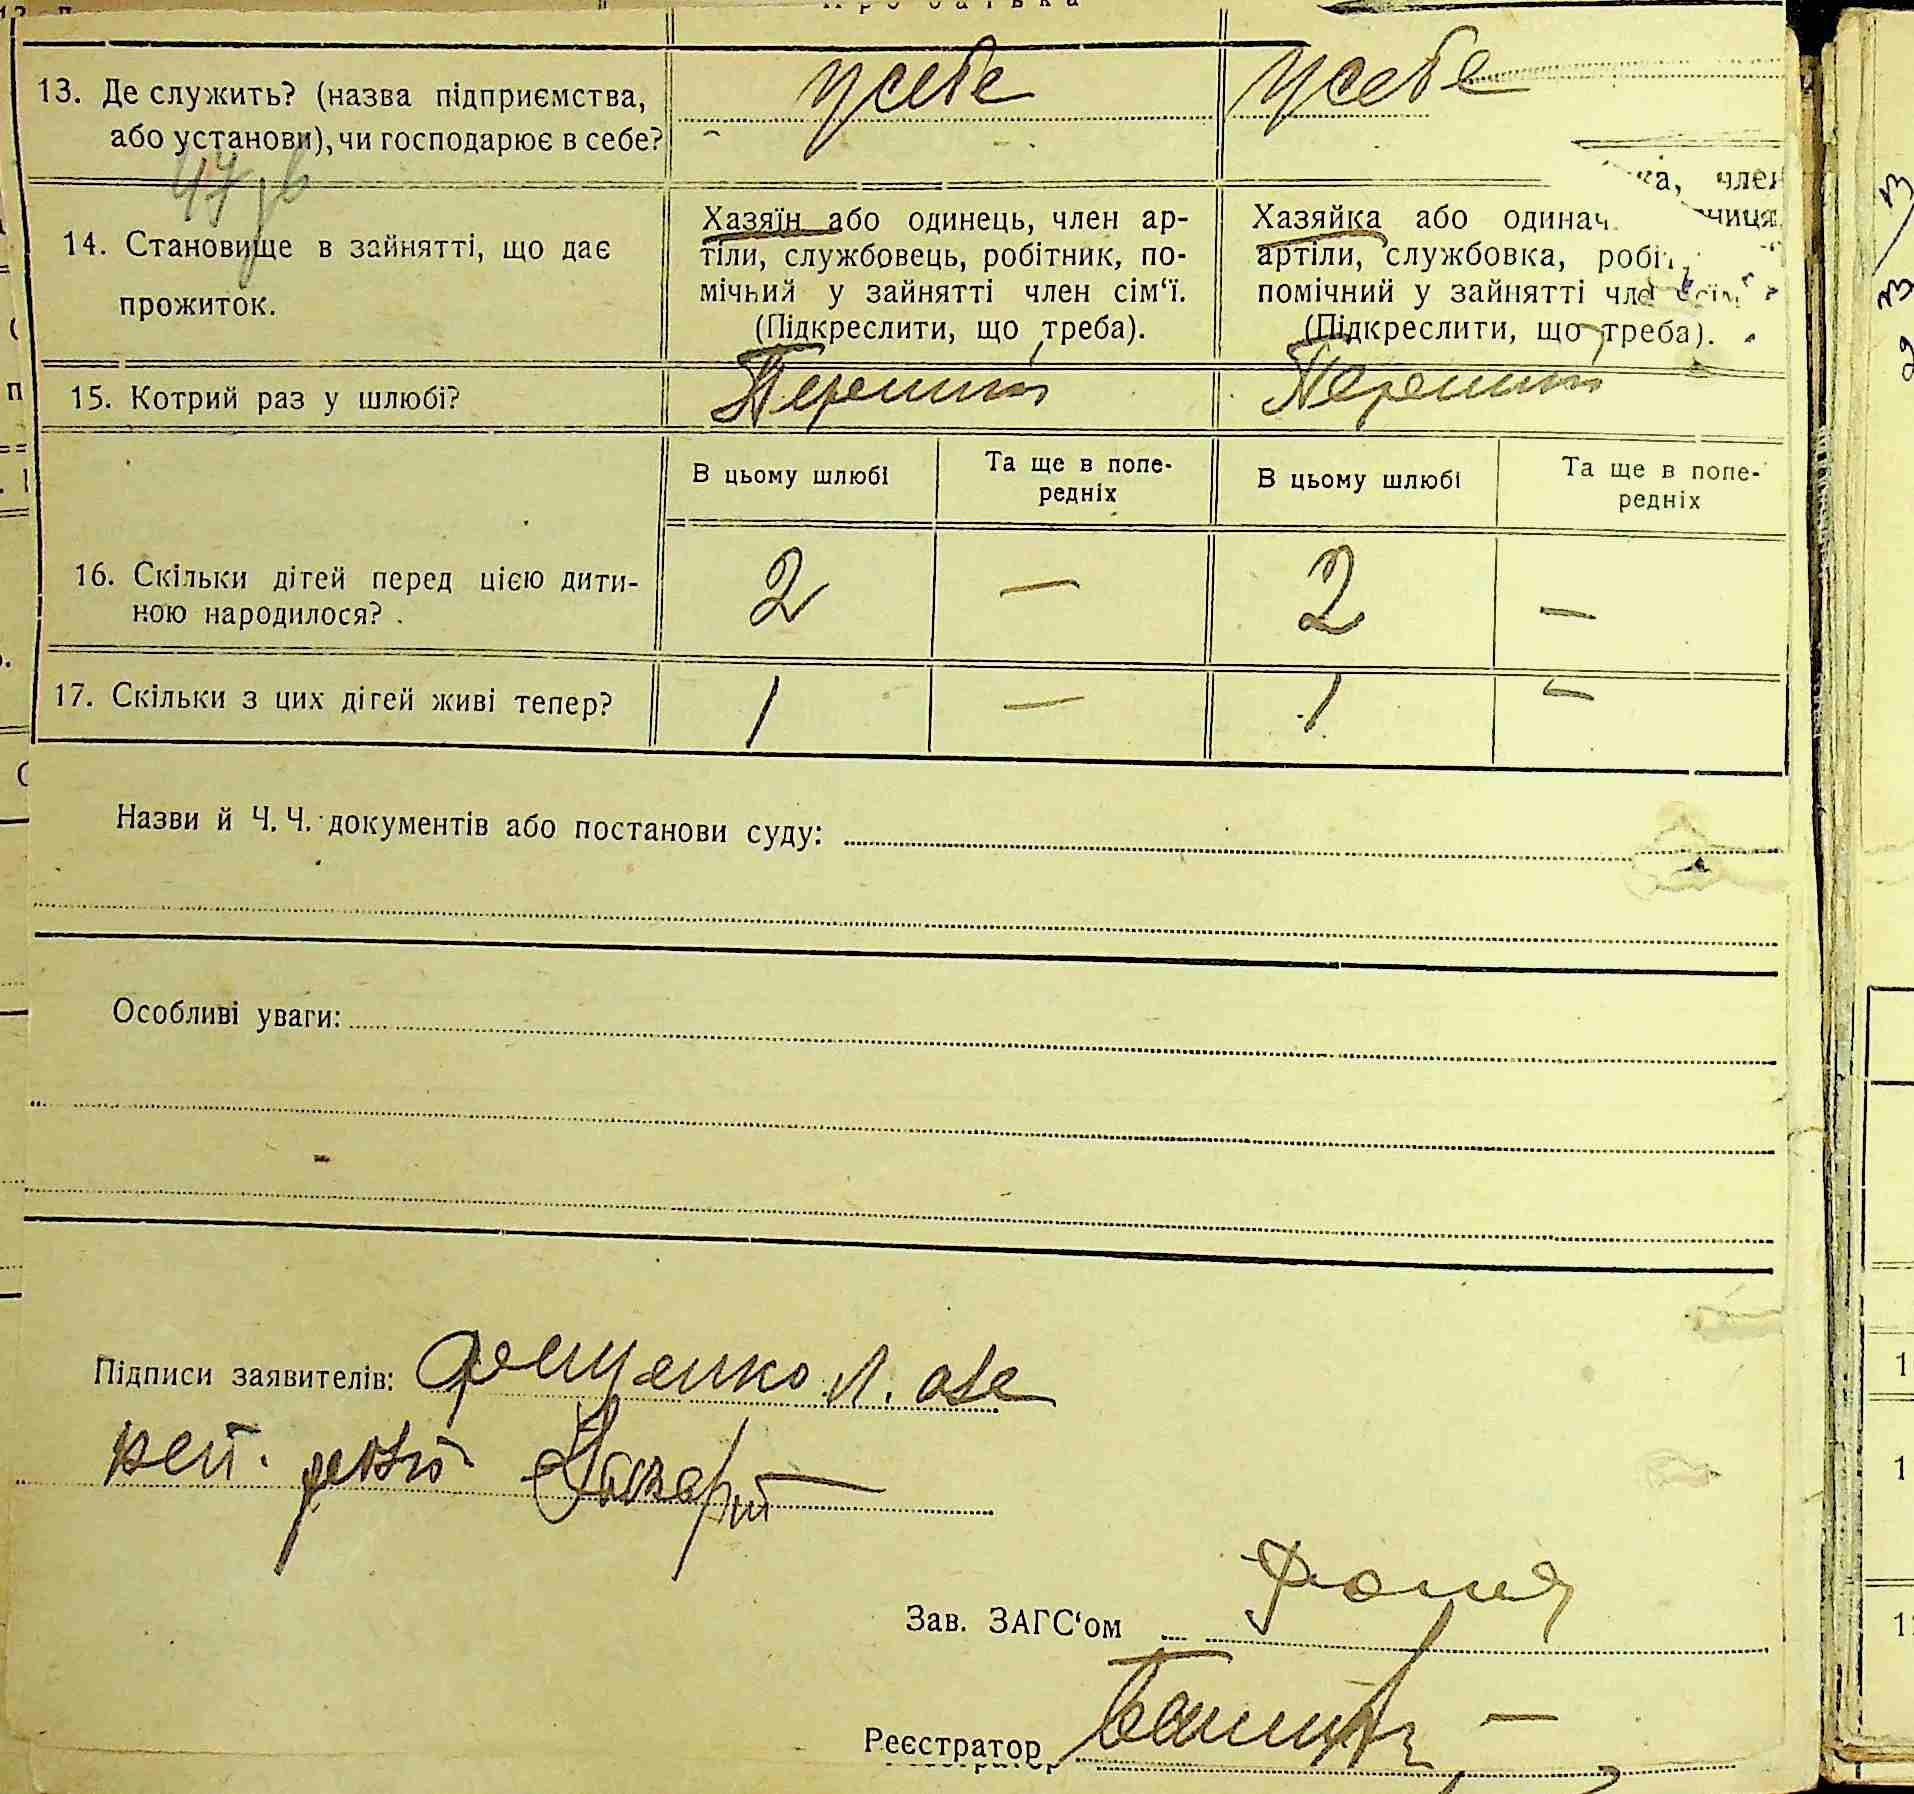 Про батька
13. Де служить? (назва підприємства, або установи), чи господарює в себе?
усебе
усебе
14. Становище в зайнятті, що дає прожиток.
Хазяїн або одинець, член ар-
тіли, службовець, робітник, по-
мічний у зайнятті член сім'ї.
(Підкреслити, що треба).
Хазяйка або одинач
артіли, службовка, робіт
помічний у зайнятті чле
(Підкреслити, що треба).
ка, член
15. Котрий раз у шлюбі?
Перший
Перший
В цьому шлюбі
Та ще в попе-
редніх
В цьому шлюбі
Та ще в попе-
редніх
16. Скільки дітей перед цією дити-
ною народилося?
2 — 2 —
17. Скільки з цих дітей живі тепер?
1 — 1 —
Назви й Ч. Ч. документів або постанови суду:
Особливі уваги:
Підписи заявителів:
Зав. ЗАГС'ом
Реєстратор